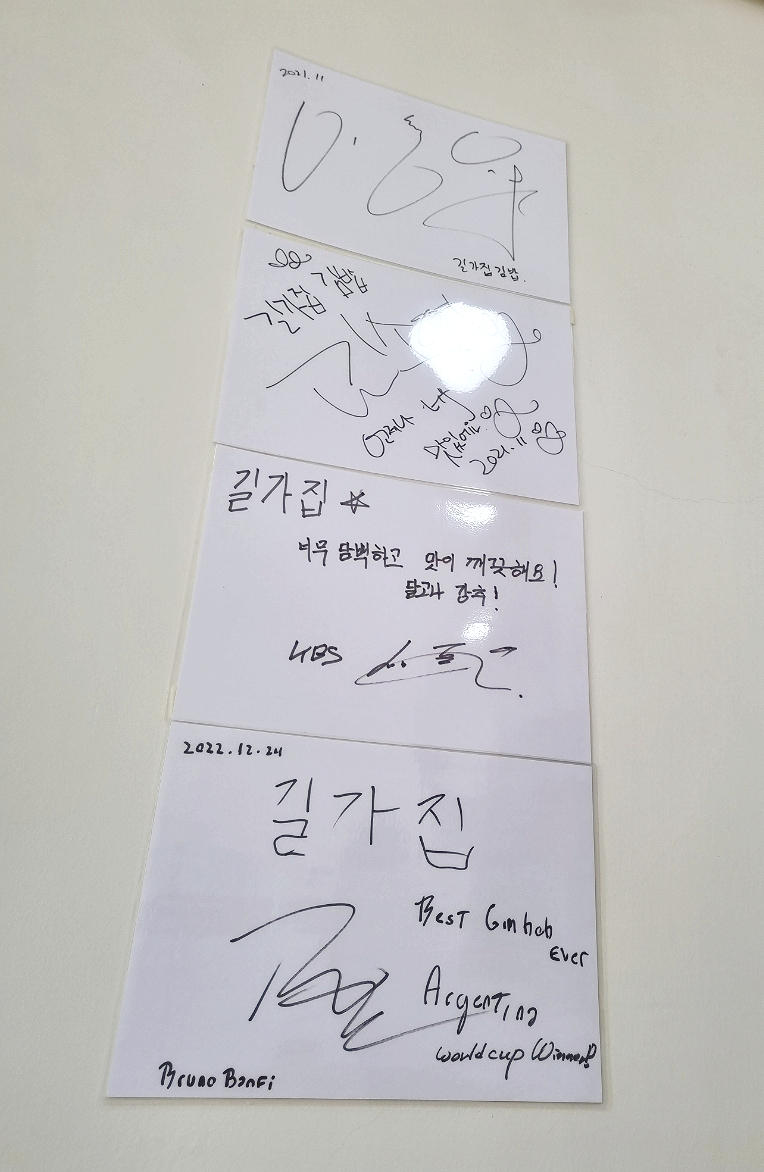 2021.11
길가집김밥.
길가집 김밥
언제나
맛있에요
2021.11
길가집
너무 담백하고 맛이 깨끗해요!
달고나 강추!
KBS
2022.12.24
길가집
Best Gimbab
Ever
Argentina
worldcup Winner!
Bruno Bonfi